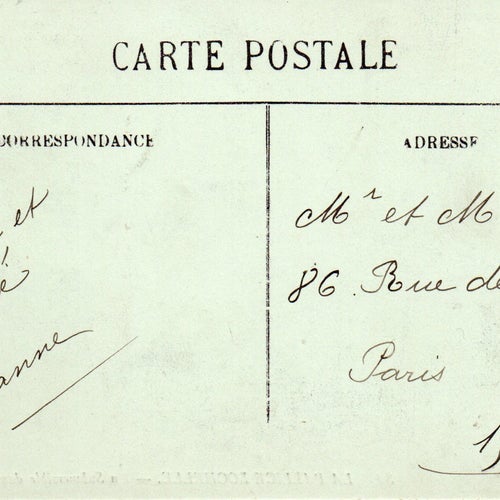 CARTE POSTALE
CORRESPONDANCE
et
é
anne
ADRESSE
Mr et M
86. Rue de
Paris